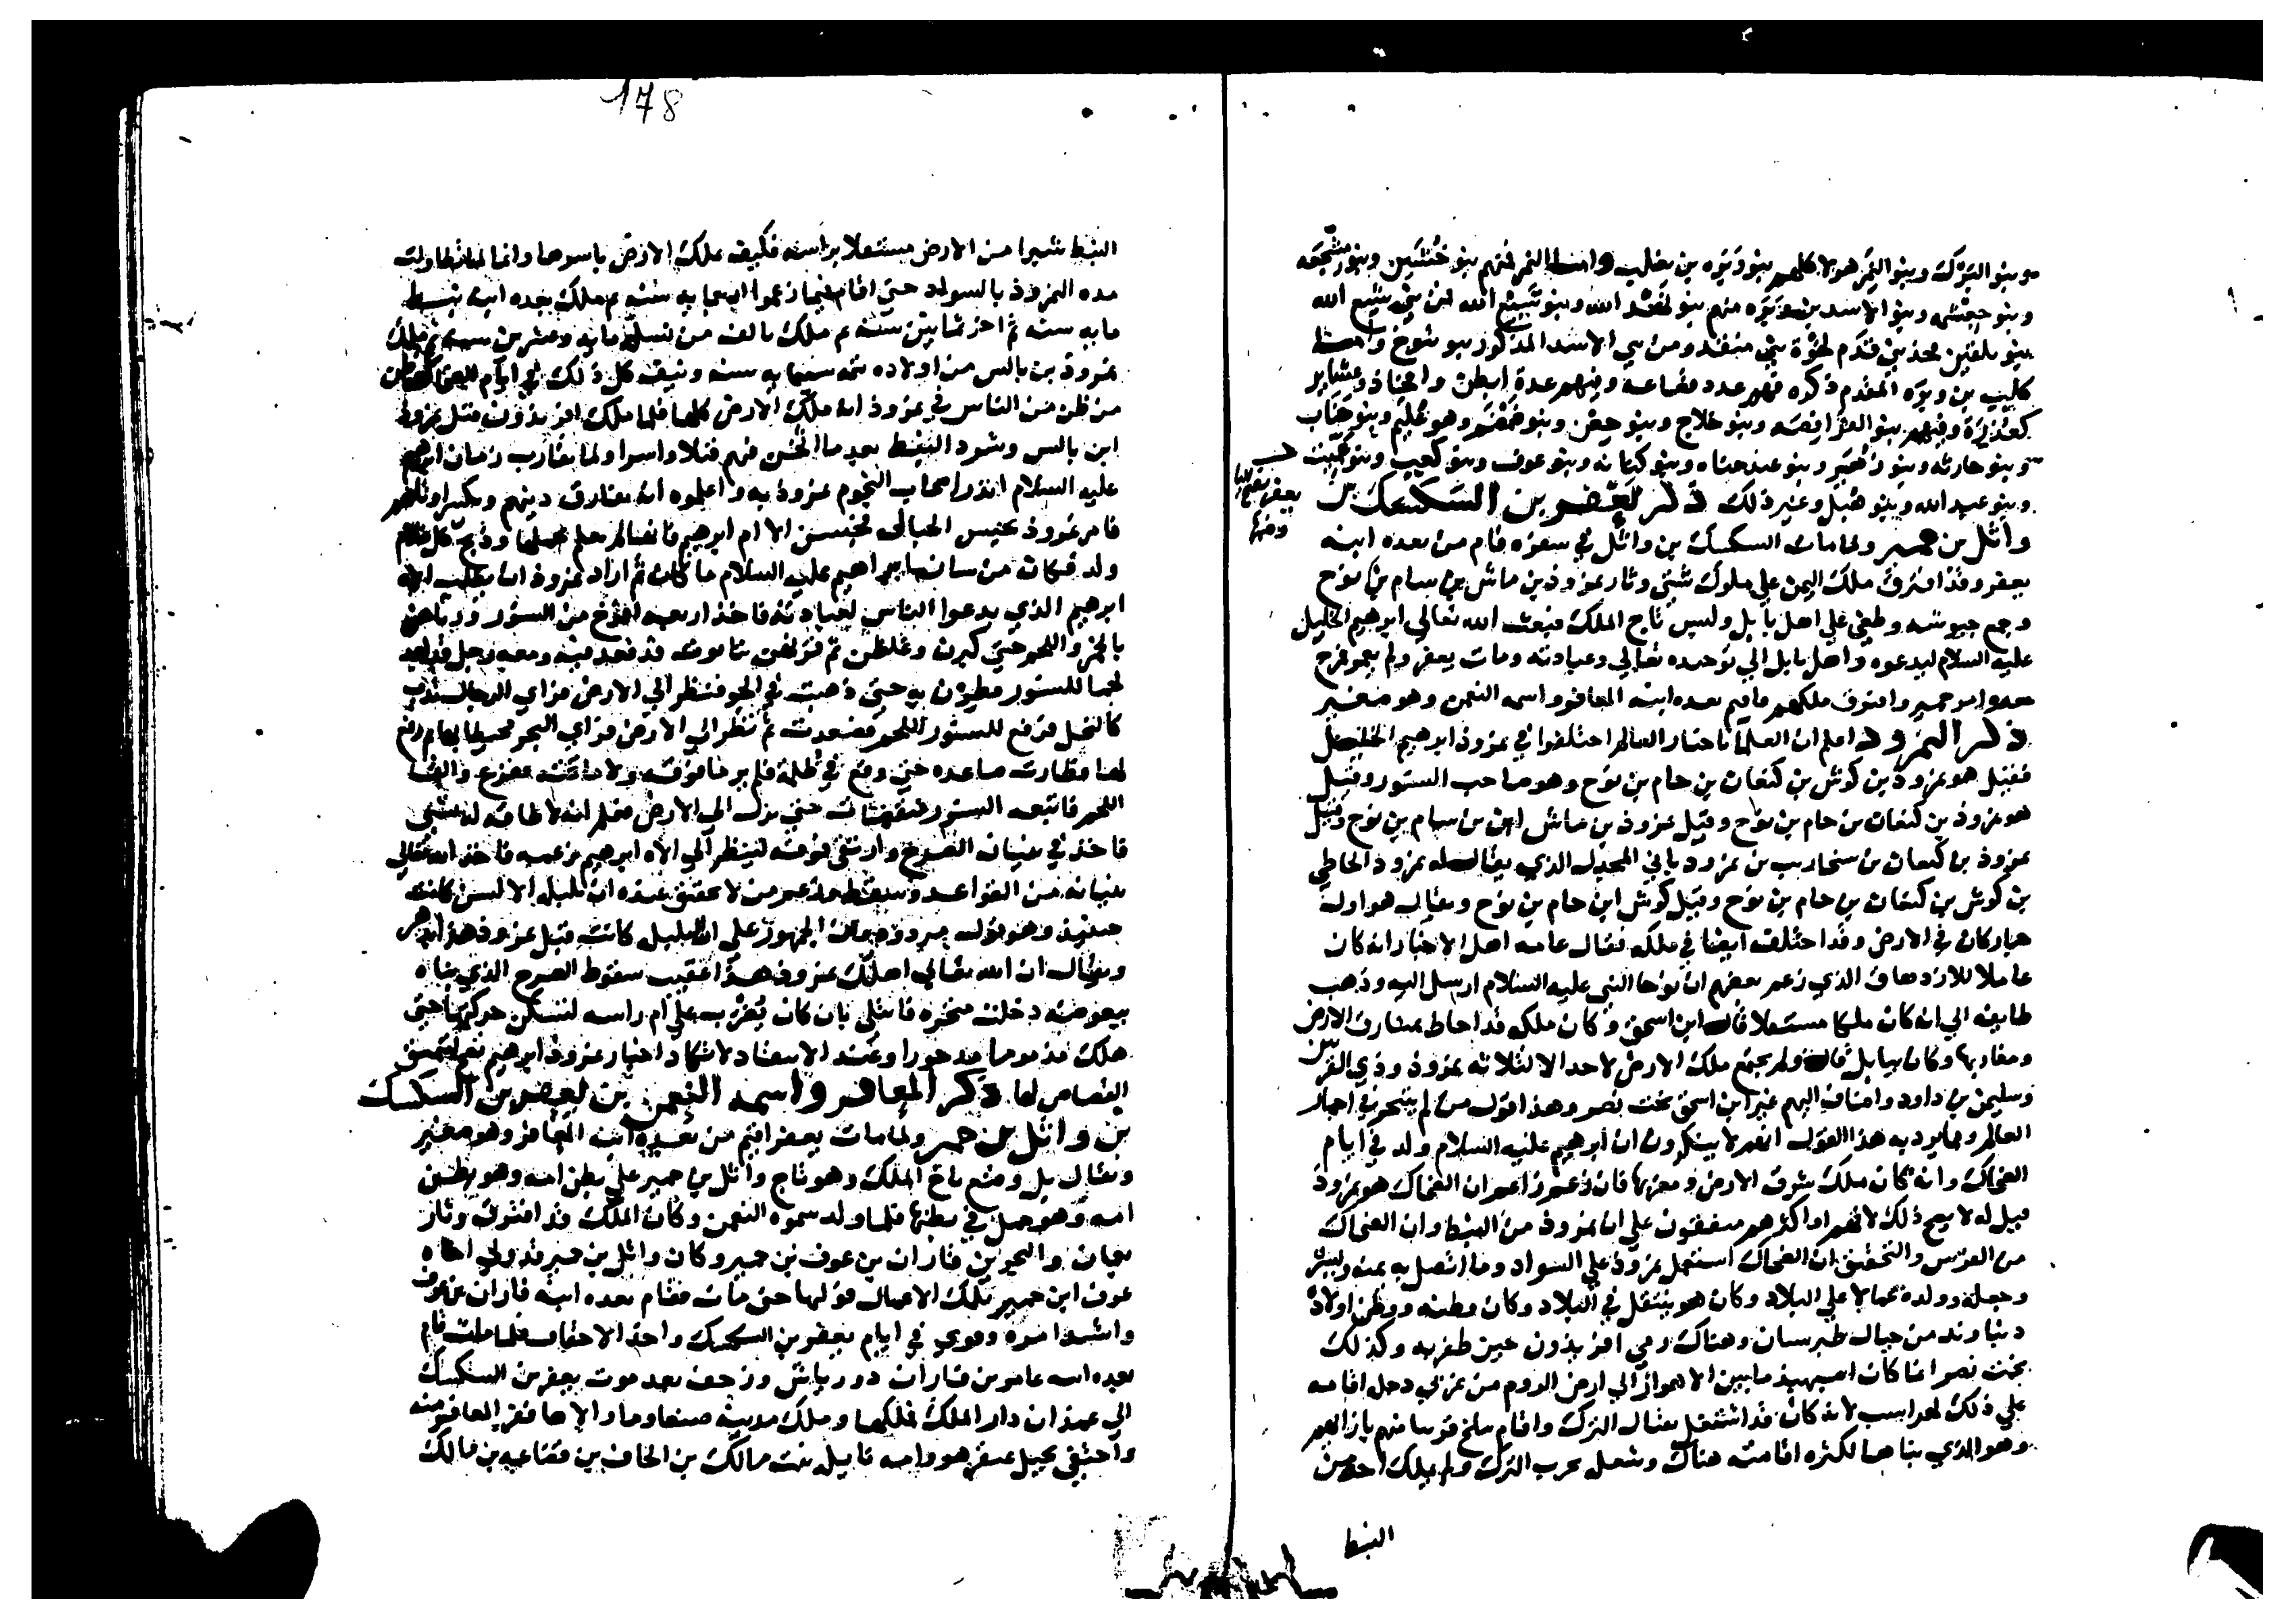 وبنو البَرْك وبنو النَّمِر هولا كلهم بنو وَبَره بن تغلب واما النمر فمنهم بنو خُشَين وبنو مشجَعه
وبنو الاسد بن وبَرَه منهم بنو الله وبنو تيم الله بن
بنو بلقين بن ومن بني الاسد المذكور بنو تنوخ واما
كليب بن وبَرَه المقدم ذكره فهم عدد قضاعه وفيهم عدة ابطن وافخاذ وعشاير
كعُذرَة وفيهم بنو وبنو خلاج وبنو وبنو ضمضم وهو عُليم وبنو جَناب
وبنو حارثه وبنو زهَير وبنو عبد مناه وبنو كنانه وبنو عوف وبنو كعب وبنو
يعفر بفتح اليا
وبنو عبد الله وبنو هُبل وغير ذلك ذكر يَعفر بن السكسك بن
وائل بن حمير ولما مات السكسك بن وائل في سفره قام من بعده ابنه
يعفر وقد افترق ملك اليمن علي ملوك شتي وثار نمروذ بن ماش بن سام بن نوح
وجمع جيوشه وطغي علي اهل بابل ولبس تاج الملك فبعث الله تعالي ابرهيم الخليل
عليه السلام ليدعوه واهل بابل الي توحيده تعالي وعبادته ومات يعفر ولم
بنو حمير وافترق ملكهم فاقيم بعده ابنه المعافر واسمه النعمن وهو صغير
ذكر النمرود اعلم ان العلما باخبار العالم اختلفوا في نمروذ ابرهيم الخليل
فقيل هو نمروذ بن كوش بن كنعان بن حام بن نوح وهو صاحب النسور وقيل
هو نمروذ بن كنعان بن حام بن نوح وقيل نمروذ بن ماش ابن بن سام بن نوح وقيل
نمروذ بن كنعان بن سنحاريب بن نمرود باني المجدل الذي يقال له نمروذ الخاطي
بن كوش بن كنعان بن حام بن نوح وقيل كوش ابن حام بن نوح ويقال هو اول
جبار كان في الارض وقد اختلف ايضا في ملكه فقال عامه اهل الاخبار انه كان
عاملا للازدهاق الذي زعم بعضهم ان نوحا النبي عليه السلام ارسل اليه وذهب
طايفه الي انه كان ملكا مستقلا قال ابن اسحق وكان ملكه قد احاط بمشارق الارض
ومغاربها وكان ببابل قال ولم يجتمع ملك الارض لاحد الا لثلاثه نمروذ وذي القرنين
وسليمن بن داود واضاف اليهم غير ابن اسحق بخت نصر وهذا قول من لم يتبحر في اخبار
العالم ومما يرد به هذا القول انهم لا ينكرون ان ابرهيم عليه السلام ولد في ايام
الضحاك وانه كان ملك شرق الارض وغربها فان زعم زاعم ان الضحاك هو نمروذ
قيل له لا يصح ذلك لانهم او اكثرهم متفقون علي ان نمروذ من النبط وان الضحاك
من الفرس والتحقيق ان الضحاك استعمل نمروذ علي السواد وما اتصل به يمنه ويسره
وجعله وولده عمالا علي البلاد وكان هو ينتقل في البلاد وكان وطنه ووطن اولاده
دنباوند من جبال طبرستان وهناك رمي افريذون حين ظفر به وكذلك
بخت نصر انما كان اصبهبذ ما بين الاهواز الي ارض الروم من غربي دجله اقامه
علي ذلك لهراسب لانه كان قد اشتغل بقتال الترك واقام ببلخ قريبا منهم بازايهم
وهو الذي بناها لكثره اقامته هناك وشغله بحرب الترك ولم يملك احد من
النبط
178
النبط شبرا من الارض مستقلا براسه فكيف بملك الارض باسرها وانما تطاولت
مده النمروذ بالسواد حتي اقام فيما زعموا اربعمايه سنه ثم ملك بعده ابنه نبيط
مايه سنه ثم اخر ثمانين سنه ثم ملك بالس من نسله مايه وعشرين سنه ثم ملك
نمروذ بن بالس من اولاده سنه ونيف كل ذلك في ايام الضحاك فظن
من ظن من الناس في نمروذ انه ملك الارض كلها فلما ملك افريذون قتل نمروذ
ابن بالس وشرد النبط بعد ما اثخن فيهم قتلا واسرا ولما تقارب زمان ابرهيم
عليه السلام انذر اصحاب النجوم نمروذ به واعلموه انه يفارق دينهم ويكسر اوثانهم
فامر نمروذ بحبس الحبالى فحبسن الا ام ابرهيم فانها لم يعلم بحبلها وذبح كل غلام
ولد فكان من شان ابراهيم عليه السلام ما كان ثم اراد نمروذ ان يطلب اله
ابرهيم الذي يدعوا الناس لعبادته فاخذ اربعه افرخ من النسور ورباهن
بالخبز واللحم حتي كبرن وغلظن ثم قرنهن بتابوت قد قعد فيه ومعه رجل
لحما للنسور فطرن به حتي ذهبت في الجو فنظر الي الارض فراي الجبال تدب
كالنمل فرفع للنسور اللحم فصعدت ثم نظر الي الارض فراي البحر محيطا بها ثم رفع
لها فطارت صاعده حتي وقع في ظلمه فلم ير ما فوقه ولا ما تحته ففزع والقا
اللحم فاتبعه النسور منقضات حتي نزل الي الارض فعلم انه لا طاقه له بشي
فاخذ في بنيان الصرح وارتقى فوقه لينظر الي الاه ابرهيم بزعمه فاخذ الله تعالي
بنيانه من القواعد وسقط من لا تحقيق عنده ان تبلبل الالسن كانت
حينئذ وهو قول مردود الجمهور علي ان التبلبل كانت قبل نمروذ هذا
ويقال ان الله تعالي اهلك نمروذ هذا عقيب سقوط الصرح الذي بناه
ببعوضه دخلت منخره فابتلي بان كان يُضرب علي ام راسه لتسكن حركتها حتي
هلك مذموما مدحورا وعند الاسناد لا تكاد اخبار نمروذ ابرهيم
القصاص لها ذكر المعافر واسمه النعمن بن يعفر بن السكسك
بن وائل بن حمير ولما مات يعفر اقيم من بعده ابنه المعافر وهو صغير
ويقال بل وضع تاج الملك وهو تاج وائل بن حمير علي بطن امه وهو
امه وهو حمل في بطنها فلما ولد سموه النعمن وكان الملك قد افترق وثار
بعمان والبحرين فاران بن عوف بن حمير وكان وائل بن حمير قد ولي اخاه
عوف ابن حمير تلك الاعمال فوليها حتى مات فقام بعده ابنه فاران بن عوف
واشتد امره وقوي في ايام يعفر بن السكسك واخذ الاحقاف فلما مات قام
بعده ابنه عامر بن فاران ذو رياش وزحف بعد موت يعفر بن السكسك
الي غمدان دار الملك فملكها وملك مدينه صنعا ففر المعافر منه
واختفى بجبل هو وامه نايله بنت مالك بن الحاف بن قضاعه بن مالك